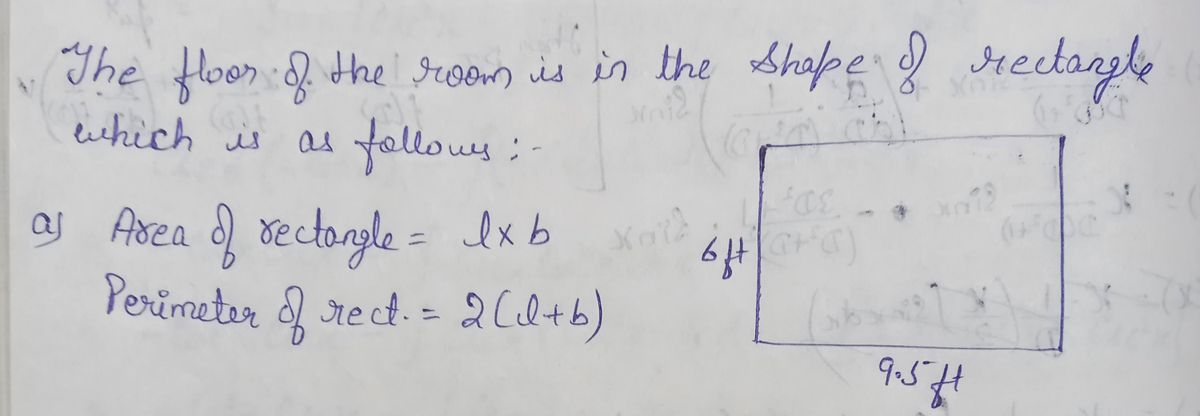 The floor of the room is in the shape of rectangle
which is as follows :-
a) Area of rectangle = l x b
6 ft
Perimeter of rect. = 2(l+b)
9.5 ft